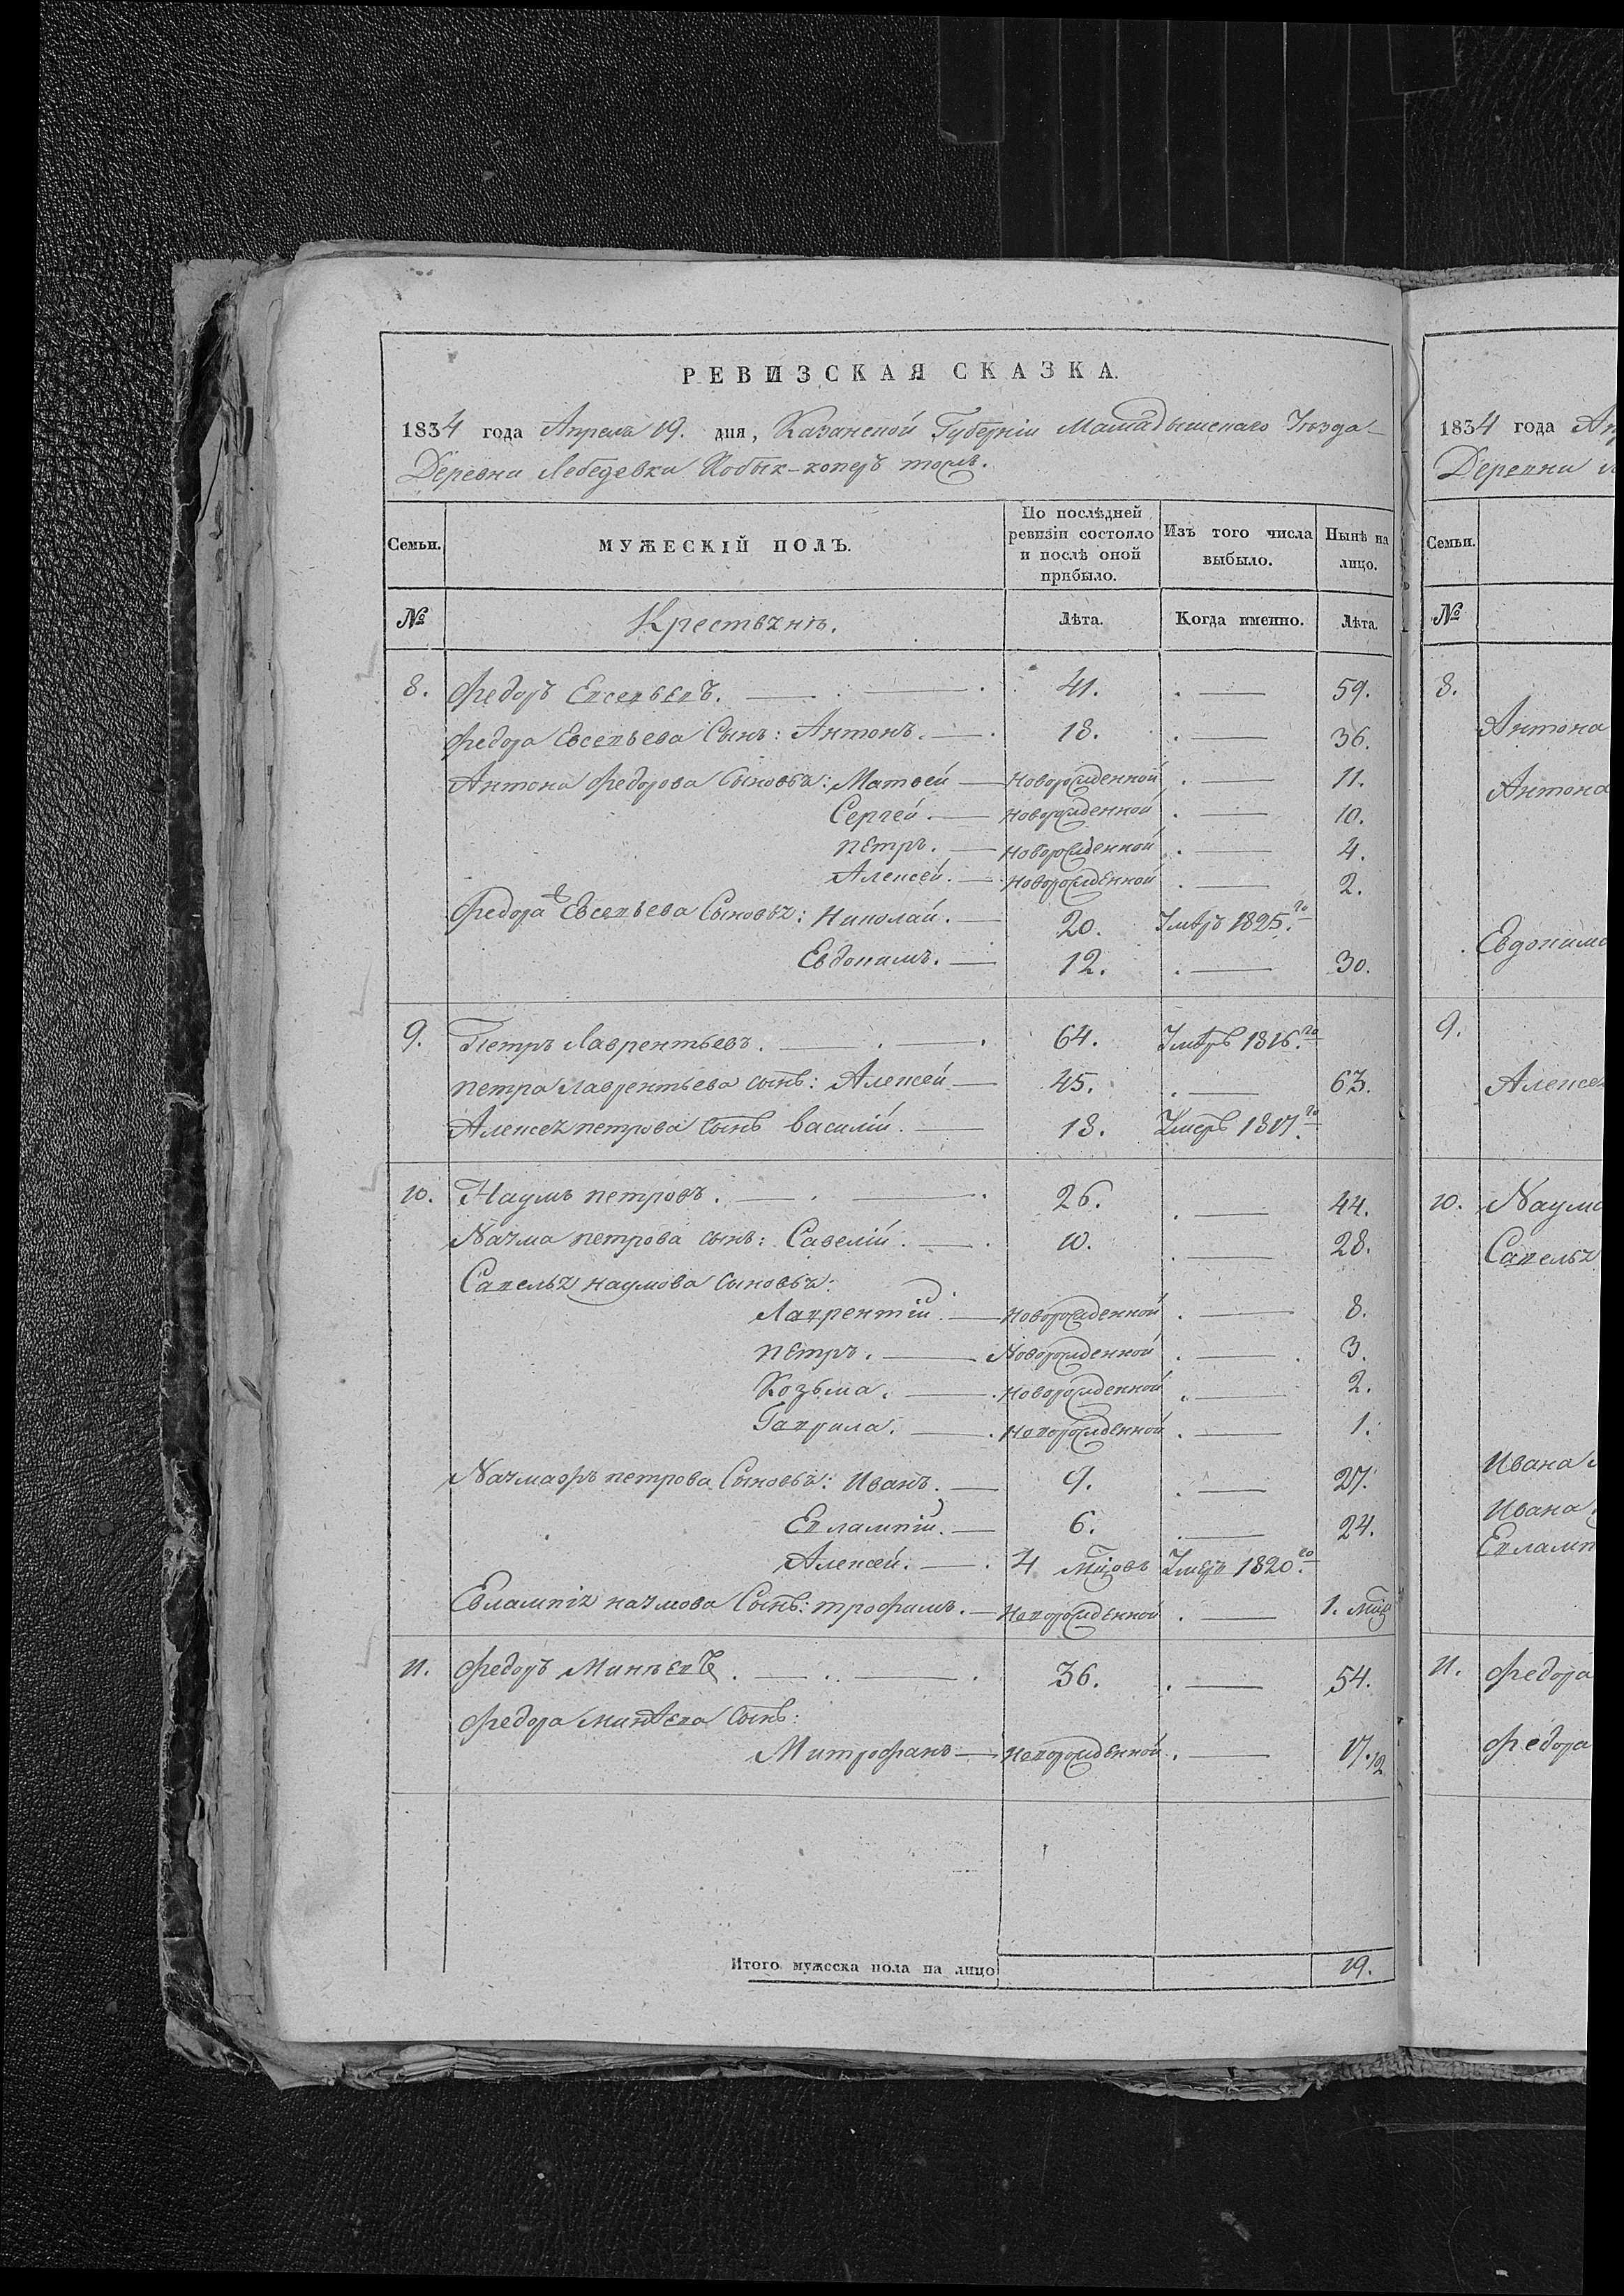 РЕВИЗСКАЯ СКАЗКА.
1834 года Апреля 19. дня, Казанской Губерніи Мамадышскаго Уѣзда
Деревни Лебедевки Кобык-копер тожъ.
Семьи. МУЖЕСКІЙ ПОЛЪ. По послѣдней ревизіи состояло и послѣ оной прибыло. Изъ того числа выбыло. Нынѣ на лицо.
№ Крестьянъ. Лѣта. Когда именно. Лѣта.
8. Федоръ Евсевьевъ. 41. 59.
Федора Евсевьева Сынъ: Антонъ. 18. 36.
Антона Федорова Сыновья: Матвей Новорожденной 11.
Сергей. Новорожденной 10.
петръ. Новорожденной 4.
Алексей. Новорожденной 2.
Федора Евсевьева Сыновья: Николай. 20. Умеръ 1825.го
Евдокимъ. 12. 30.
9. Петръ Лаврентьевъ. 64. Умеръ 1816.го
петра Лаврентьева сынъ: Алексей 45. 63.
Алексея петрова Сынъ Василій. 18. Умеръ 1817.го
10. Наумъ петровъ. 26. 44.
Наума петрова сынъ: Савелій. 10. 28.
Савелья наумова Сыновья:
Лаврентій. Новорожденной 8.
петръ. Новорожденной 3.
Козьма. Новорожденной 2.
Гаврила. Новорожденной 1.
петрова Сыновья: Иванъ. 9. 27.
Евлампій. 6. 24.
Алексей. 4 Мцовъ Умеръ 1820.го
Евлампія наумова Сынъ: трофимъ. Новорожденной 1. мцъ
11. Федоръ Минѣевъ. 36. 54.
Федора минѣева Сынъ:
Митрофанъ Новорожденной 17.
Итого мужеска пола на лицо 19.
1834 года Ап
Деревни Л
Семьи.
№
8.
Антона
Антона
Евдокима
9.
Алексея
10. Наума
Савелья
Ивана
Ивана
Евламп
11. Федора
Федора